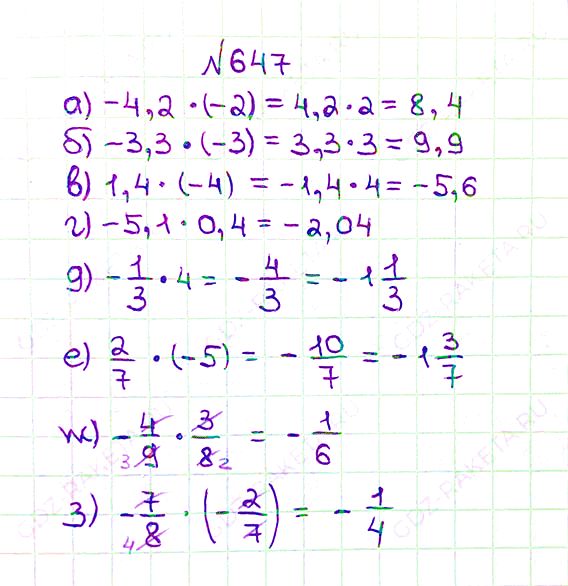 №647
а) -4,2 · (-2) = 4,2 · 2 = 8,4
б) -3,3 · (-3) = 3,3 · 3 = 9,9
в) 1,4 · (-4) = -1,4 · 4 = -5,6
г) -5,1 · 0,4 = -2,04
д) -1/3 · 4 = -4/3 = -1 1/3
е) 2/7 · (-5) = -10/7 = -1 3/7
ж) -4/9 · 3/8 = -1/6
3 2
з) -7/8 · (-2/7) = -1/4
4
GDZ-RAKETA.RU